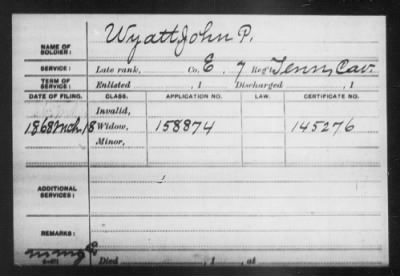 NAME OF SOLDIER: Wyatt John P.
SERVICE: Late rank, Co. E. 7 Reg't Tenn. Cav.
TERM OF SERVICE: Enlisted , 1 Discharged , 1
DATE OF FILING. CLASS. APPLICATION NO. LAW. CERTIFICATE NO.
Invalid,
1868 Mch. 18 Widow, 158874 145276
Minor,
ADDITIONAL SERVICES:
REMARKS:
Died , 1 , at